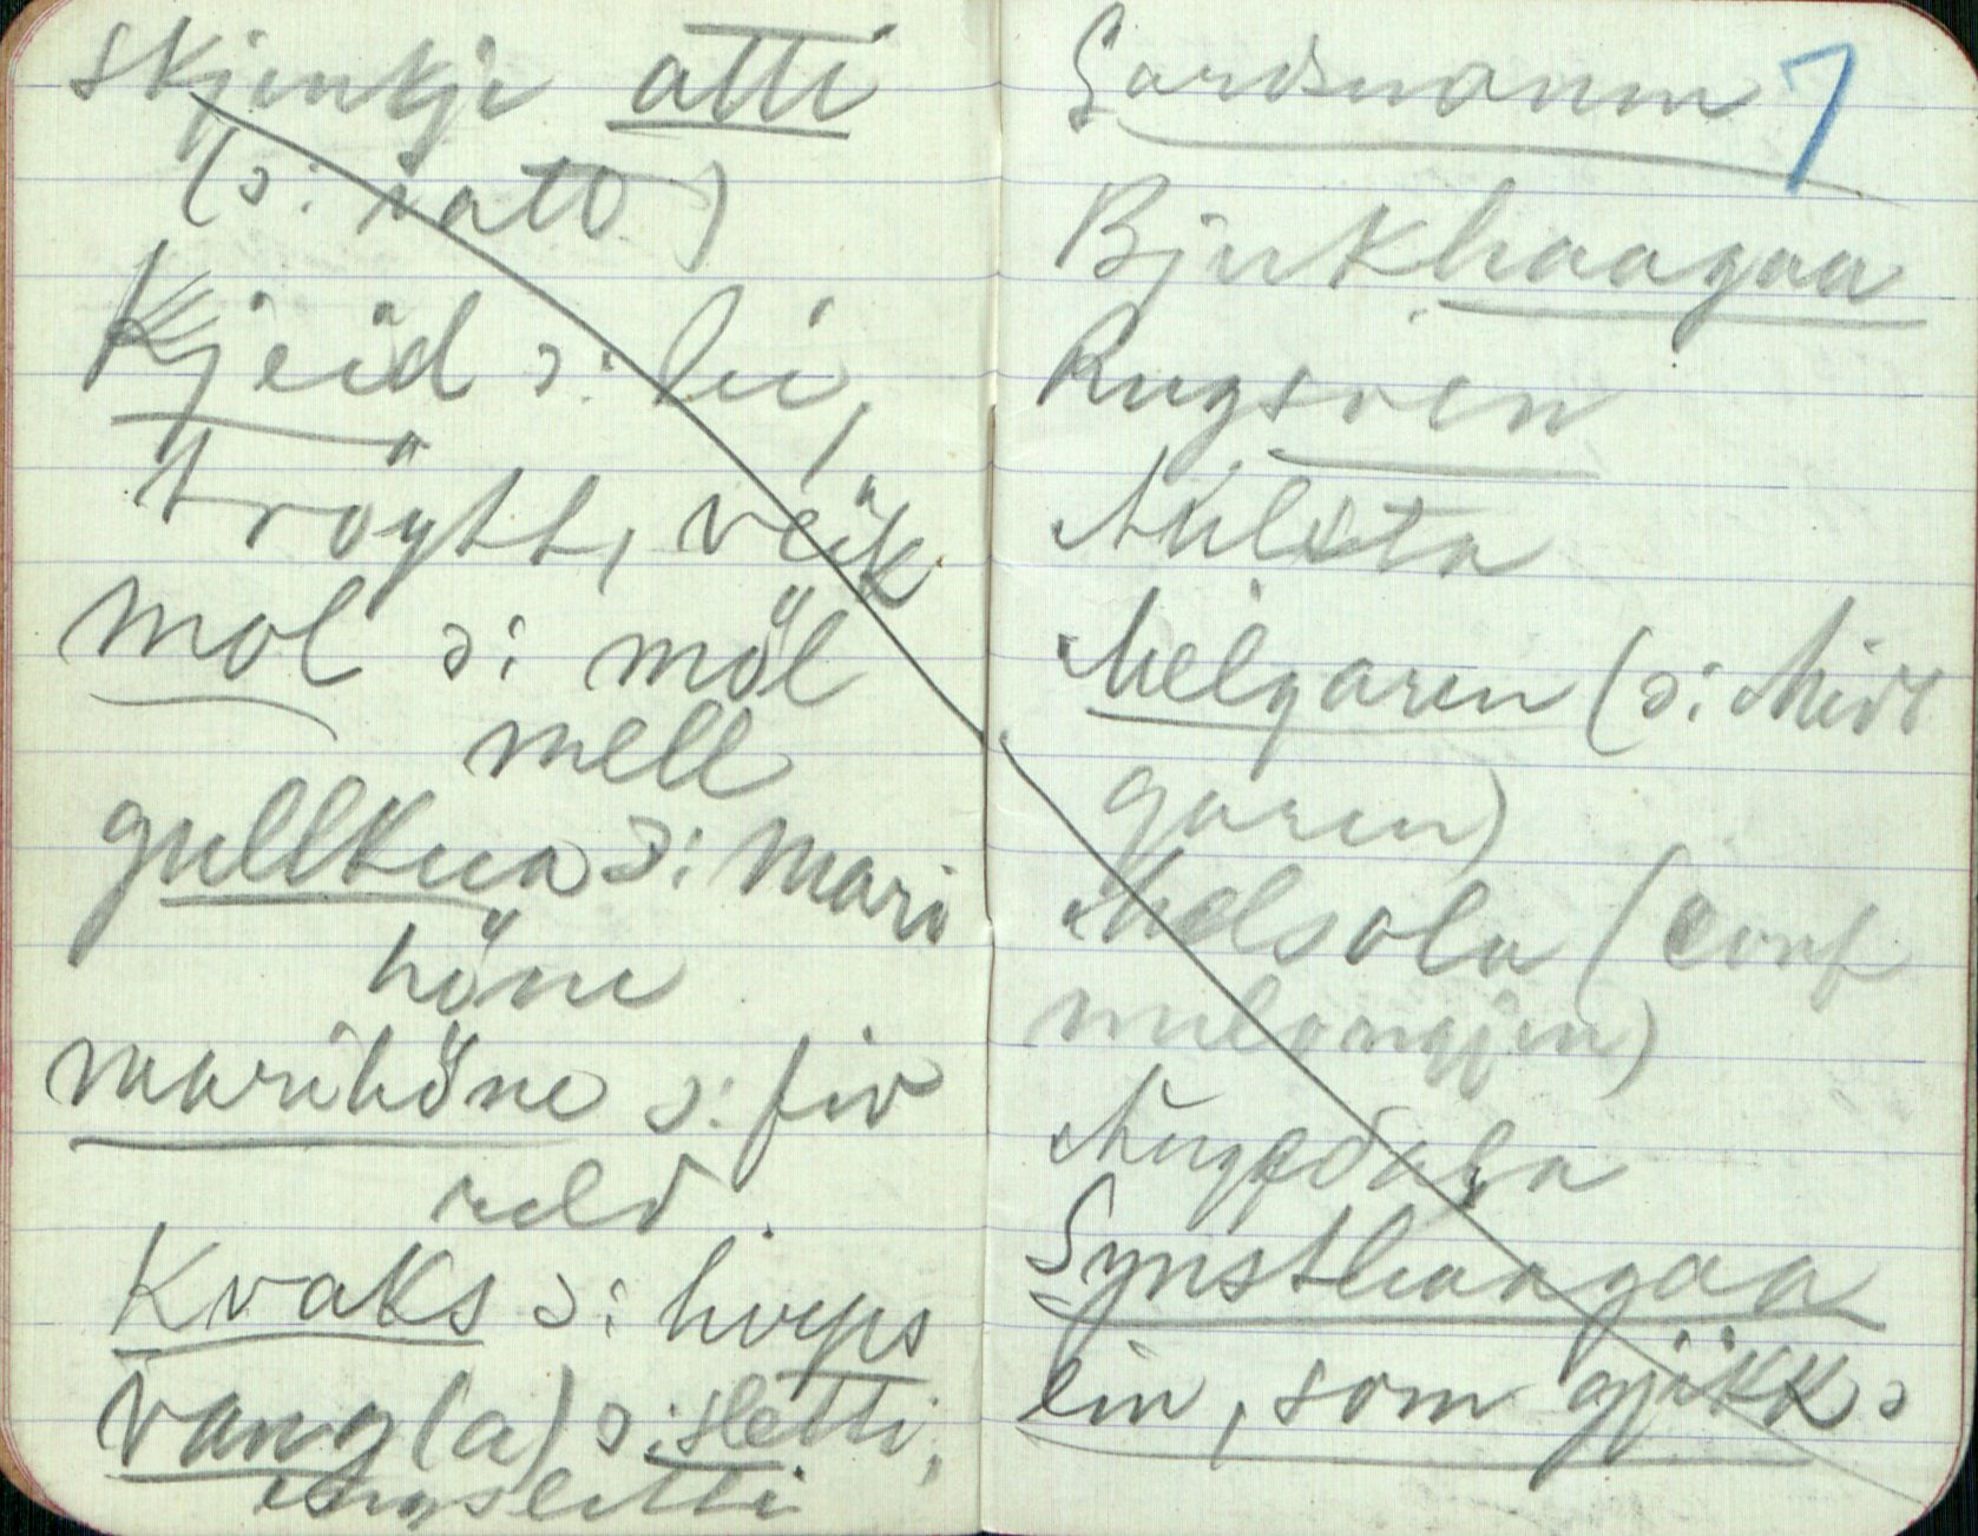 skjenkje atti
(ɔ: natt)
Kjeid ɔ: lei,
tröytt, veik
mol ɔ: möl
mell
gullkua ɔ: mari
höne
marihöne ɔ: fiv
reld.
Kvaks ɔ: hveps
vang(a) ɔ: sletti,
Gardsnamn 7
Bjirkhaagaa
Rugsven
Milsta
Melgaren (ɔ: Midt
garen)
Melsola (conf
Synsthaagaa
ein, som gjikk ɔ